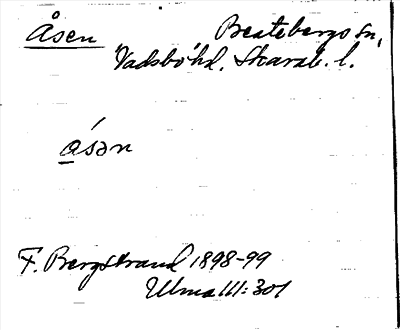 Åsen Beatebergs sn,
Vadsbo hd, Skarab. l.
åsən
F. Bergstrand 1898-99
Ulma 111:301